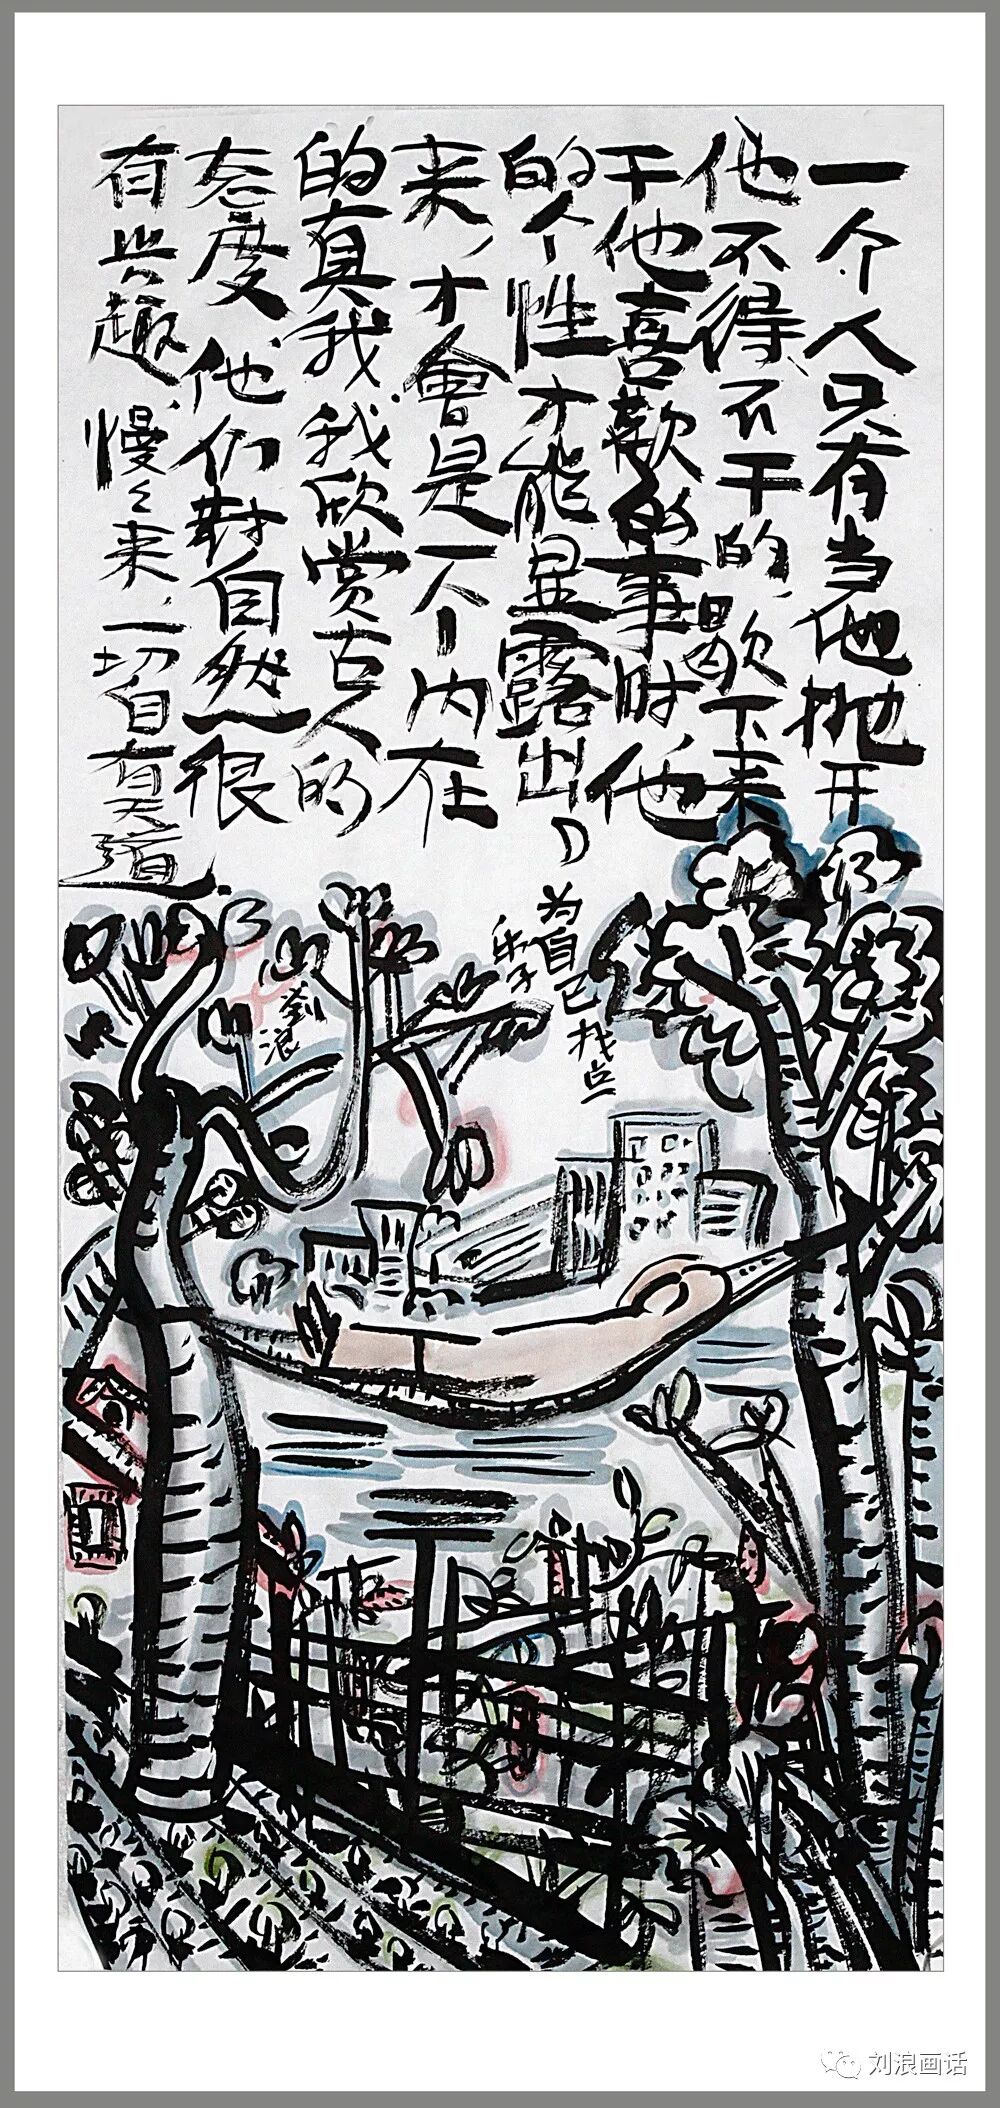 一个人只有当他抛开
他不得不干的歇下来
干他喜歡的事时他
的个性才能显露出
来，才會是一个内在
的真我，我欣赏古人的
态度，他们對自然很
有兴趣，慢々来，一切自有天道
为自己找点
乐子
劉浪
刘浪画话